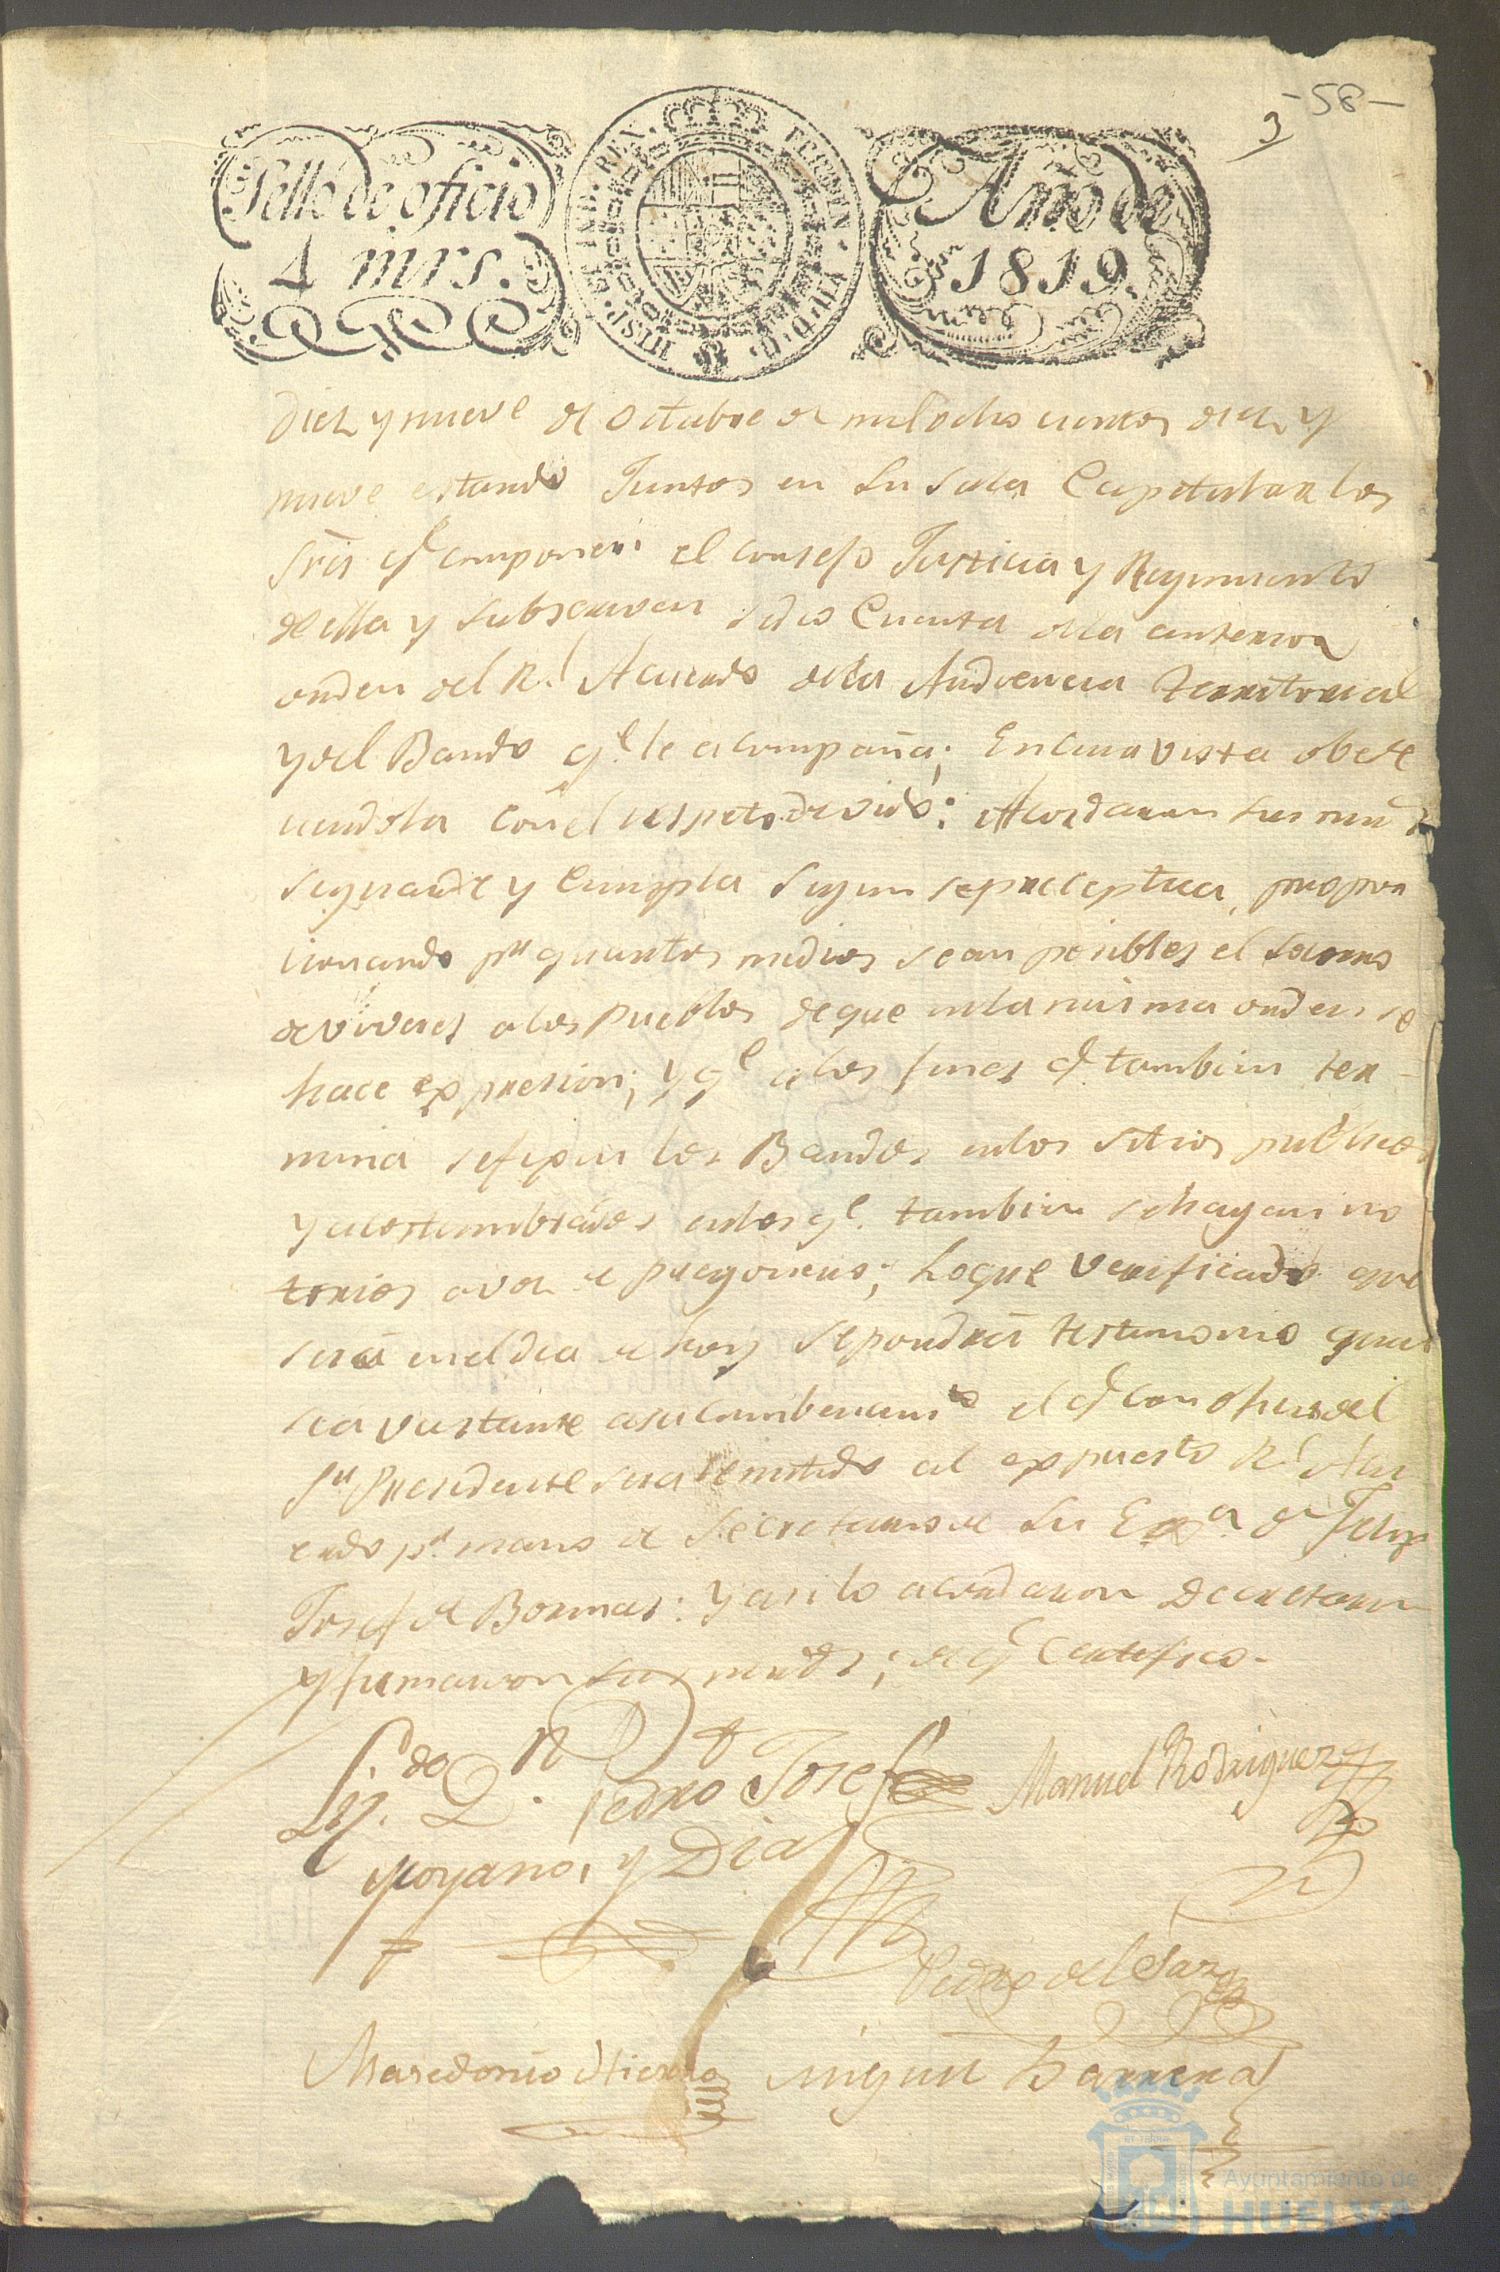 -58-
3
Sello de oficio
4 mrs.
FERDIN. VII. D. G. HISP. ET IND. REX.
Año de
1819.
diez y nueve de Octubre de mil ocho cientos diez y
nueve estando Juntos en su sala Capitular los
Sres q.e componen el consejo Justicia y Regimiento
de ella y subscriven se dio Cuenta de la anterior
orden del R.l Acuerdo de la Audiencia territorial
y del Bando q.e le acompaña; En cuia vista obede
ciendola con el respeto devido: Acordaron sus mrds
se guarde y Cumpla segun se preceptua, propor
cionando p.r quantos medios sean posibles el socorro
de viveres a los Pueblos de que en la misma orden se
hace expresion; y q.e a los fines q.e tambien ter-
mina se fixen los Bandos en los sitios publicos
y acostumbrados en los q.e tambien se hagan no
torios a voz de pregonero; Lo que verificado que
será en el dia de hoy se pondrá testimonio que
sea vastante a su cumbencim.to el q.e con oficio del
S.r Presidente sera remitido al expuesto R.l Acu
erdo p.r mano de Secretario de Su Ex.a D.n Felip
Josef de Bormas: Y asi lo acordaron Decretaron
y firmaron sus mrds; de q.e Certifico.-
Liz.do D.n Pedro Josef Manuel Rodriguez
Moyano, y Diaz
Pedro del Saz
Macedonio Miguel Barrera
Ayuntamiento de
HUELVA